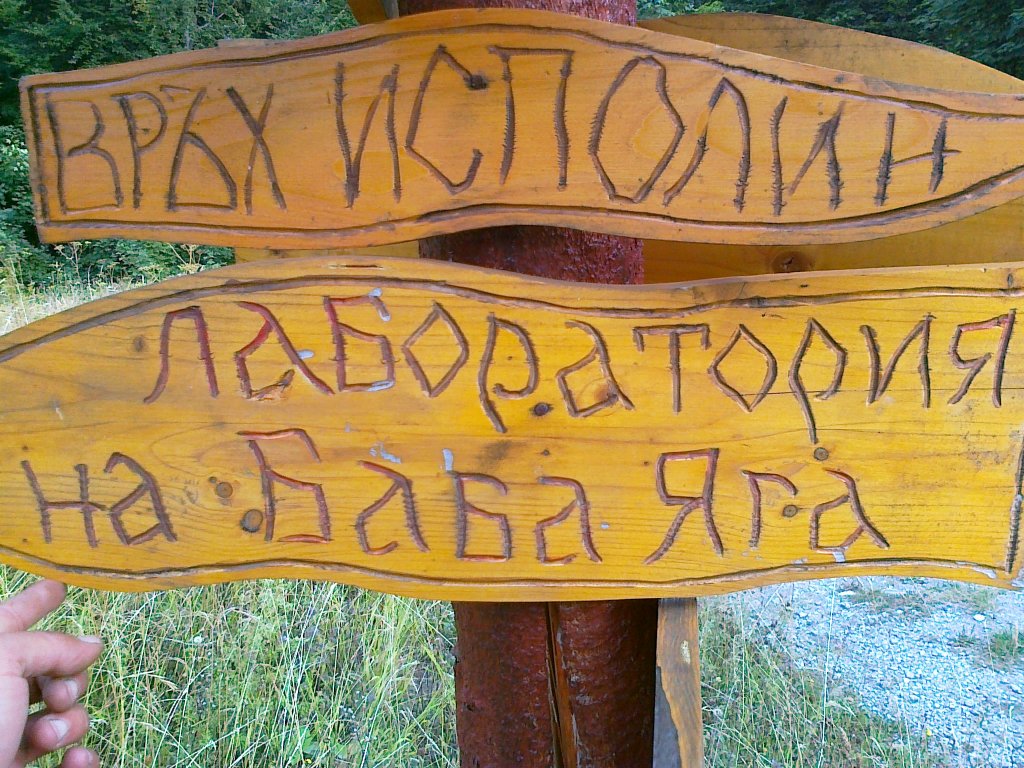 ВРЪХ ИСПОЛИН
Лаборатория
на Баба Яга